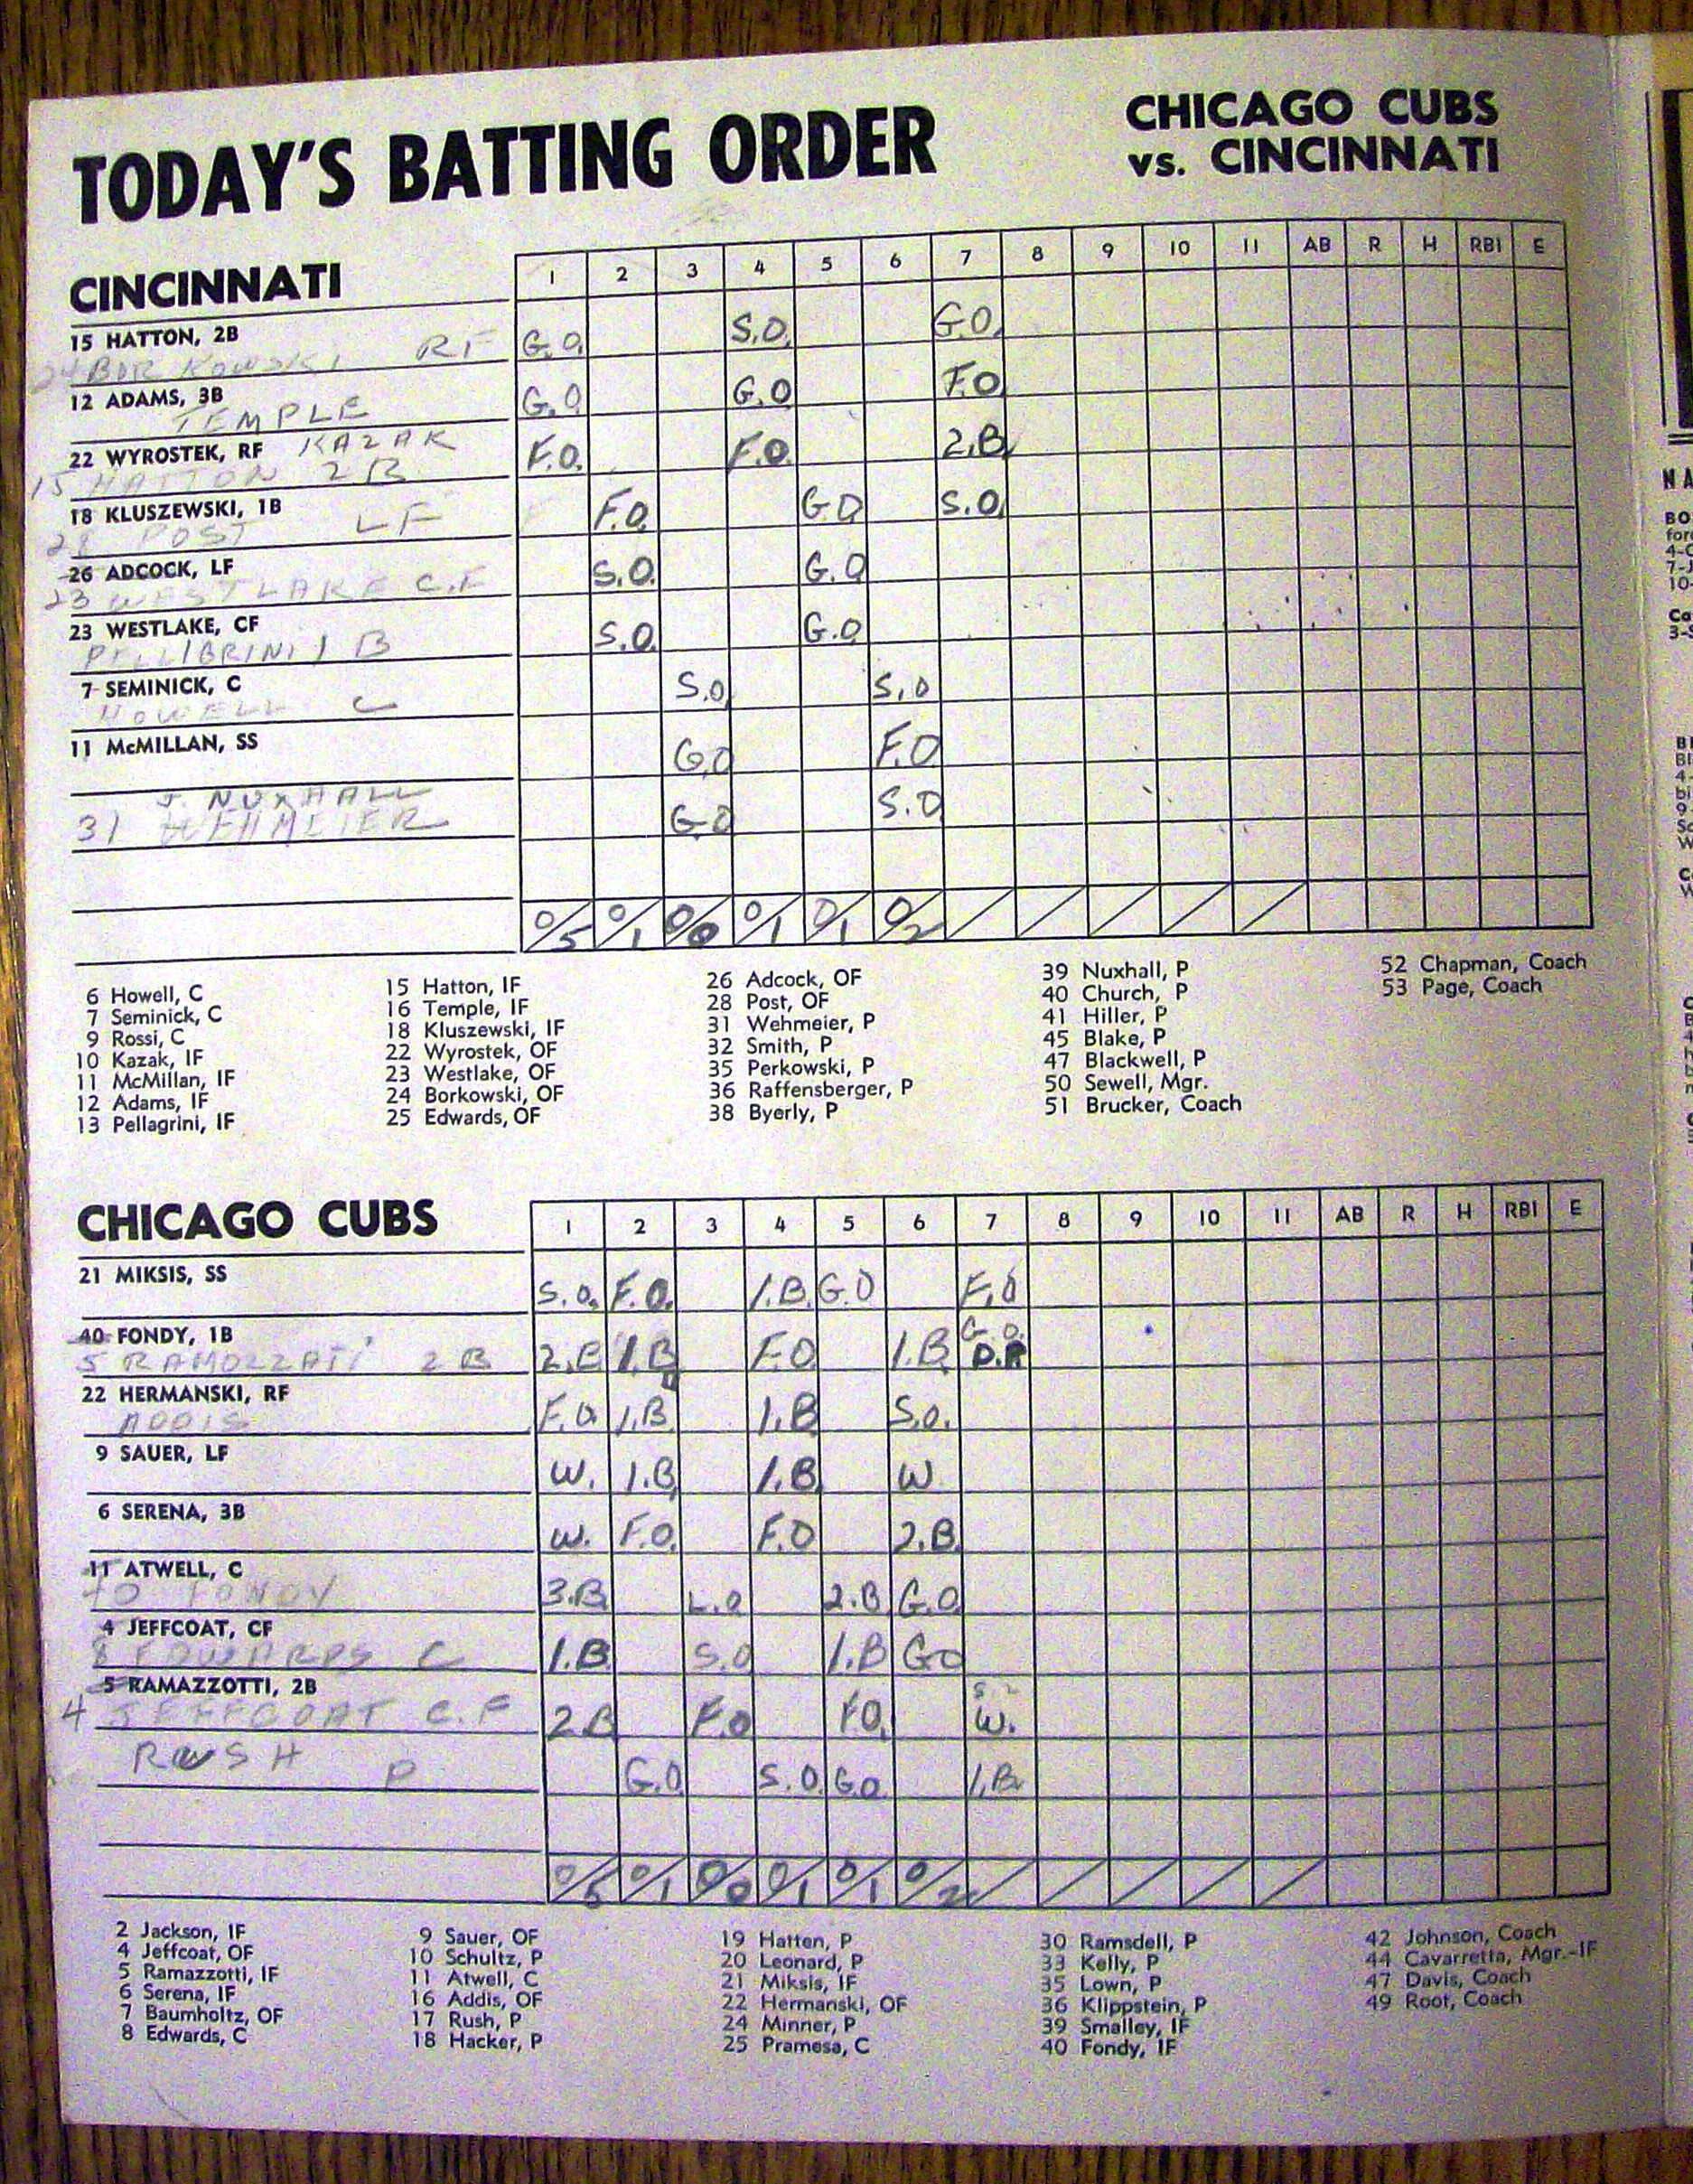 TODAY'S BATTING ORDER
CHICAGO CUBS
vs. CINCINNATI
CINCINNATI 1 2 3 4 5 6 7 8 9 10 11 AB R H RBI E
15 HATTON, 2B
24 BORKOWSKI RF G.O. S.O. G.O.
12 ADAMS, 3B
TEMPLE G.O G.O F.O
22 WYROSTEK, RF KAZAK
15 HATTON 2B F.O. F.O. 2.B
18 KLUSZEWSKI, 1B
28 POST LF F.O. G.O S.O.
26 ADCOCK, LF
23 WESTLAKE C.F S.O. G.O
23 WESTLAKE, CF
PELLIGRINI 1 B S.O. G.O
7 SEMINICK, C
HOWELL C S.O, S.O
11 McMILLAN, SS
G.O F.O
J. NUXHALL
31 WEHMEIER G.O S.O
0/5 0/1 0/0 0/1 0/1 0/2
6 Howell, C
7 Seminick, C
9 Rossi, C
10 Kazak, IF
11 McMillan, IF
12 Adams, IF
13 Pellagrini, IF
15 Hatton, IF
16 Temple, IF
18 Kluszewski, IF
22 Wyrostek, OF
23 Westlake, OF
24 Borkowski, OF
25 Edwards, OF
26 Adcock, OF
28 Post, OF
31 Wehmeier, P
32 Smith, P
35 Perkowski, P
36 Raffensberger, P
38 Byerly, P
39 Nuxhall, P
40 Church, P
41 Hiller, P
45 Blake, P
47 Blackwell, P
50 Sewell, Mgr.
51 Brucker, Coach
52 Chapman, Coach
53 Page, Coach
CHICAGO CUBS 1 2 3 4 5 6 7 8 9 10 11 AB R H RBI E
21 MIKSIS, SS
S.O. F.O. 1.B. G.O F.O
40 FONDY, 1B G.O.
5 RAMOZZATI 2B 2.B 1.B F.O 1.B. D.P.
22 HERMANSKI, RF
ADDIS F.O. 1.B 1.B S.O.
9 SAUER, LF
W. 1.B. 1.B. W
6 SERENA, 3B
W. F.O. F.O 2.B.
11 ATWELL, C
40 FONDY 3.B. L.O 2.B G.O.
4 JEFFCOAT, CF
8 EDWARDS C 1.B. S.O 1.B GO
5 RAMAZZOTTI, 2B
4 JEFFCOAT C.F 2.B F.O F.O. W.
RUSH P G.O. S.O. G.O. 1.B.
0/5 0/1 0/0 0/1 0/1 0/2
2 Jackson, IF
4 Jeffcoat, OF
5 Ramazzotti, IF
6 Serena, IF
7 Baumholtz, OF
8 Edwards, C
9 Sauer, OF
10 Schultz, P
11 Atwell, C
16 Addis, OF
17 Rush, P
18 Hacker, P
19 Hatten, P
20 Leonard, P
21 Miksis, IF
22 Hermanski, OF
24 Minner, P
25 Pramesa, C
30 Ramsdell, P
33 Kelly, P
35 Lown, P
36 Klippstein, P
39 Smalley, IF
40 Fondy, IF
42 Johnson, Coach
44 Cavarretta, Mgr.-IF
47 Davis, Coach
49 Root, Coach